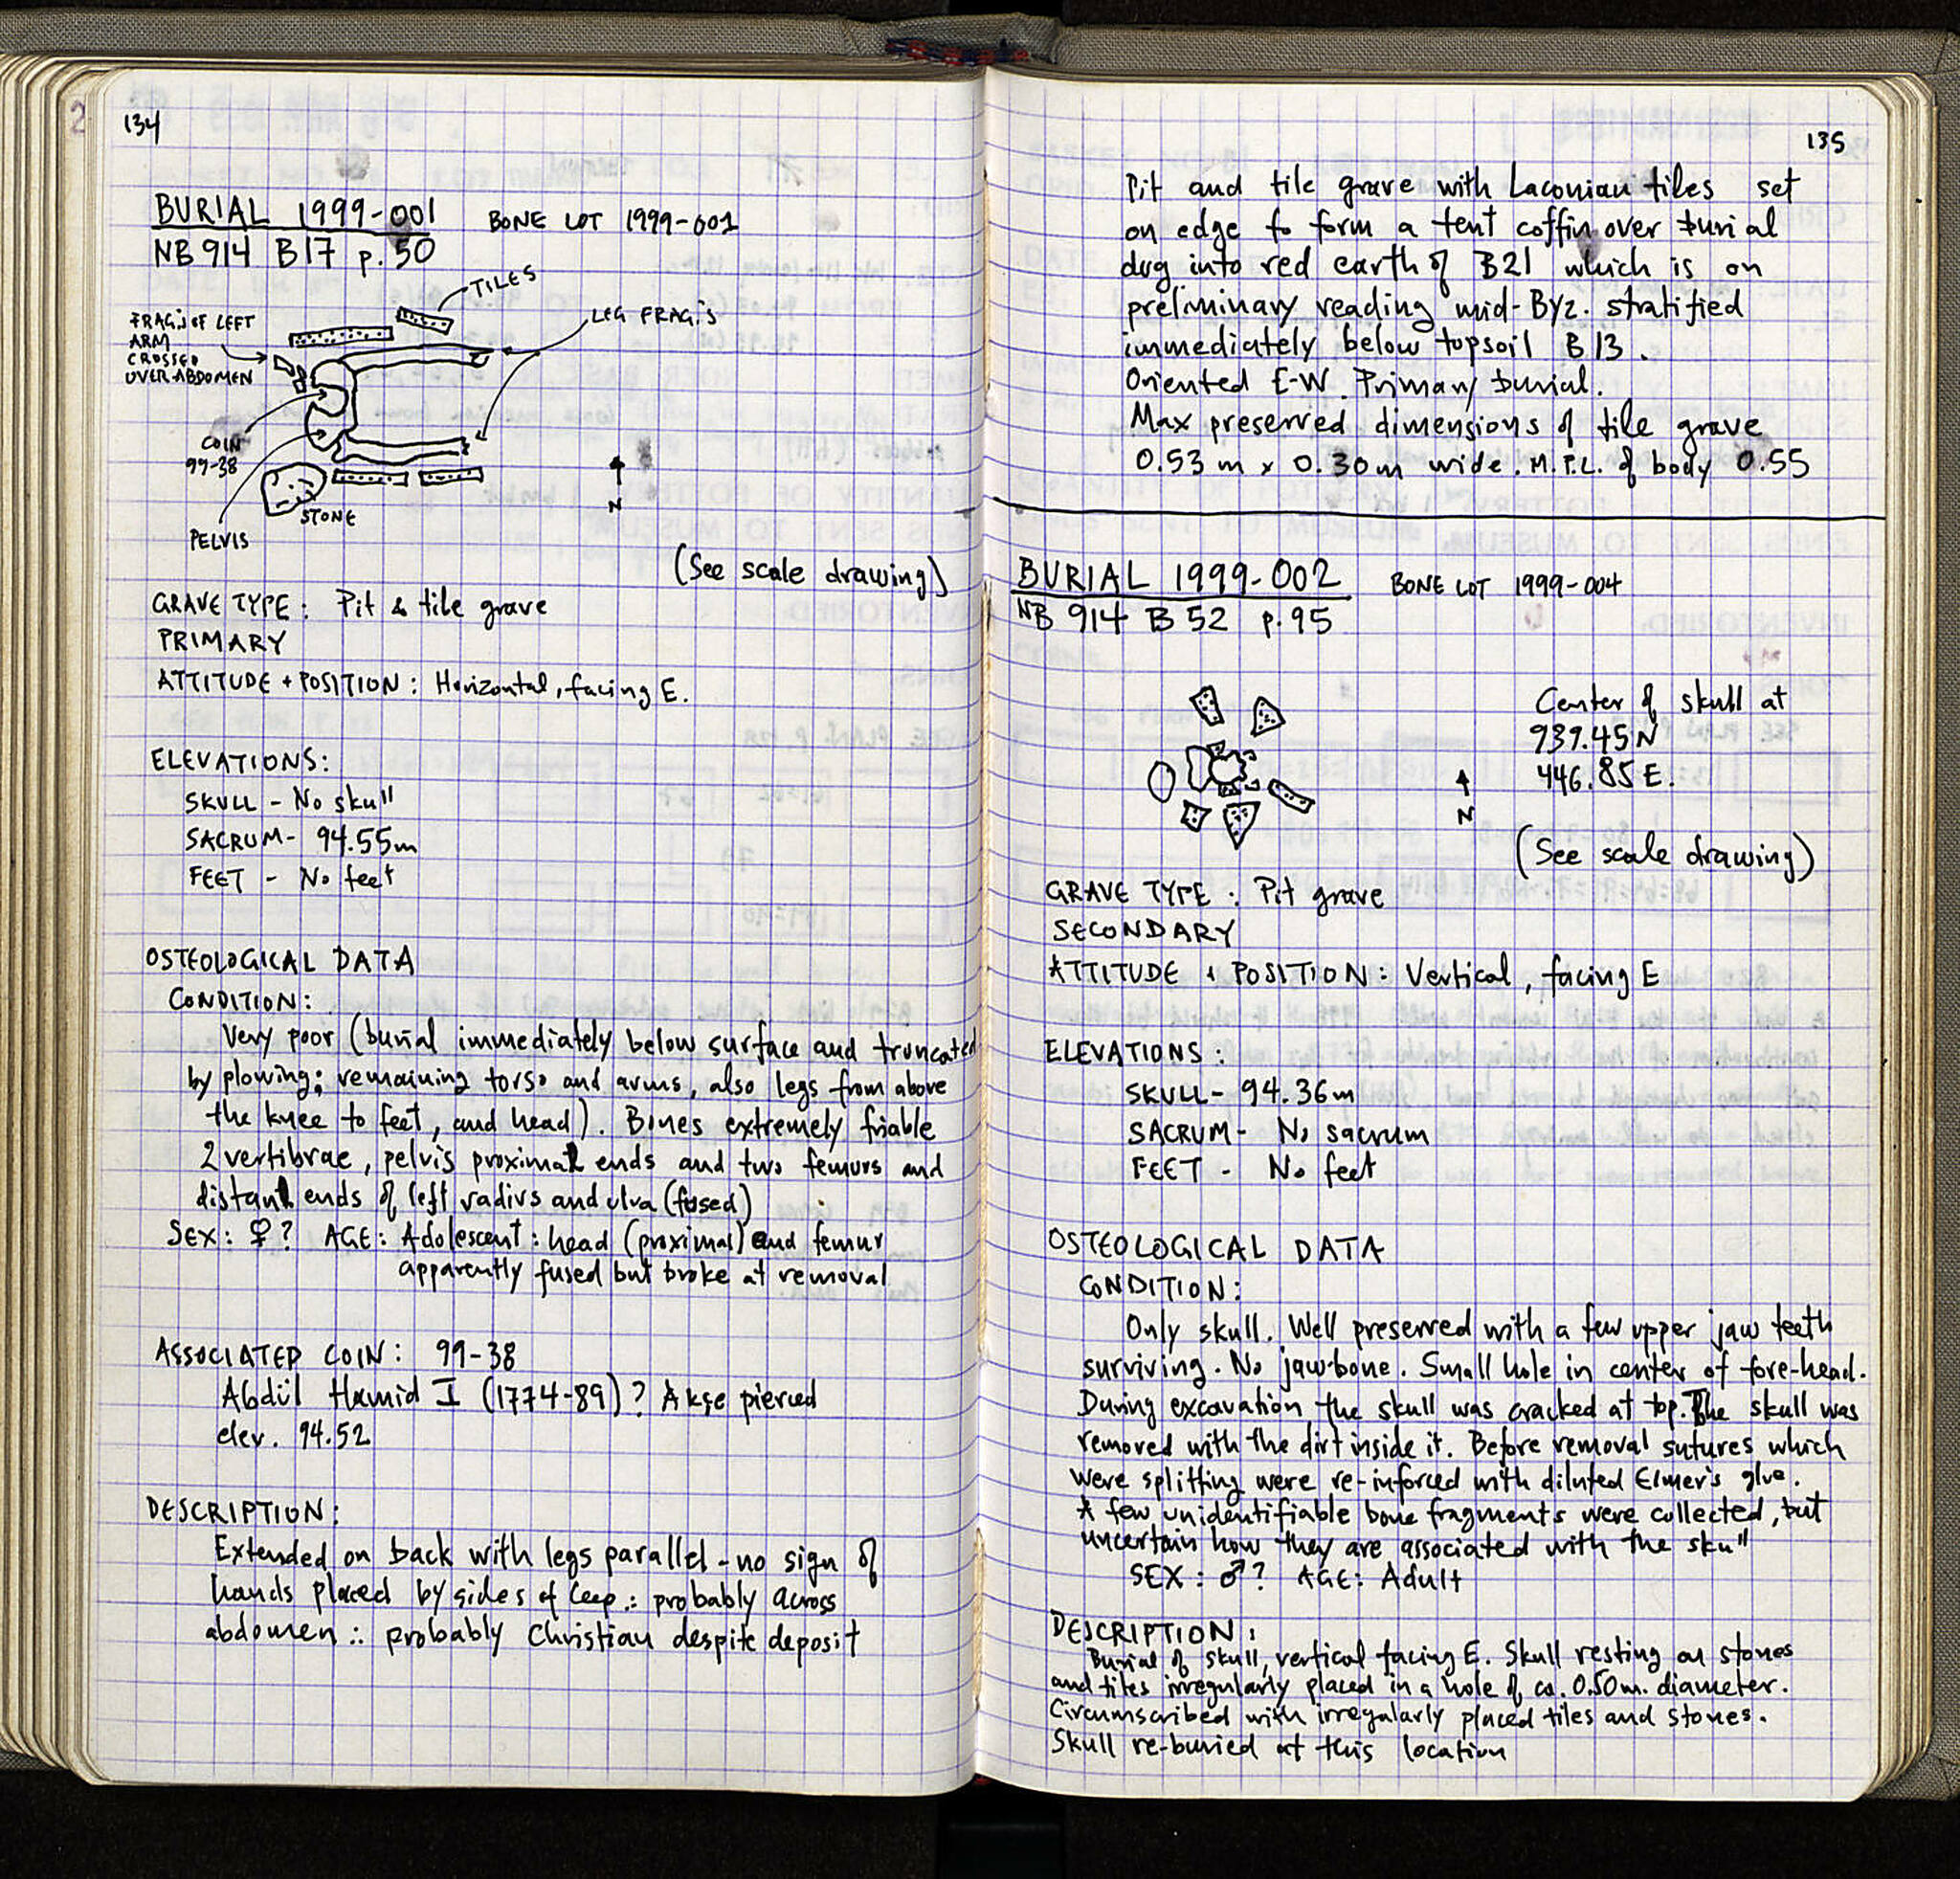 134
BURIAL 1999-001 BONE LOT 1999-001
NB 914 B17 p. 50
TILES
FRAG.S OF LEFT
ARM
CROSSED
OVER ABDOMEN
LEG FRAG.S
COIN
99-38
STONE
N
PELVIS
(See scale drawing)
GRAVE TYPE: Pit & tile grave
PRIMARY
ATTITUDE + POSITION: Horizontal, facing E.
ELEVATIONS:
SKULL - No skull
SACRUM - 94.55m
FEET - No feet
OSTEOLOGICAL DATA
CONDITION:
Very poor (burial immediately below surface and truncated
by plowing; remaining torso and arms, also legs from above
the knee to feet, and head). Bones extremely friable
2 vertibrae, pelvis proximal ends and two femurs and
distant ends of left radius and ulva (fused)
SEX: ♀? AGE: Adolescent: head (proximal) and femur
apparently fused but broke at removal
ASSOCIATED COIN: 99-38
Abdül Hamid I (1774-89)? Akçe pierced
elev. 94.52
DESCRIPTION:
Extended on back with legs parallel - no sign of
hands placed by sides of ∴ probably across
abdomen ∴ probably Christian despite deposit
135
Pit and tile grave with Laconian tiles set
on edge to form a tent coffin over burial
dug into red earth of B21 which is on
preliminary reading mid-Byz. stratified
immediately below topsoil B13.
Oriented E-W. Primary burial.
Max preserved dimensions of tile grave
0.53 m x 0.30m wide. M.P.L. of body 0.55
BURIAL 1999-002 BONE LOT 1999-004
NB 914 B 52 p. 95
Center of skull at
939.45N
446.85 E.
N
(See scale drawing)
GRAVE TYPE: Pit grave
SECONDARY
ATTITUDE + POSITION: Vertical, facing E
ELEVATIONS:
SKULL - 94.36m
SACRUM - No sacrum
FEET - No feet
OSTEOLOGICAL DATA
CONDITION:
Only skull. Well preserved with a few upper jaw teeth
surviving. No jawbone. Small hole in center of fore-head.
During excavation the skull was cracked at top. The skull was
removed with the dirt inside it. Before removal sutures which
were splitting were re-inforced with diluted Elmer's glue.
A few unidentifiable bone fragments were collected, but
uncertain how they are associated with the skull
SEX: ♂? AGE: Adult
DESCRIPTION:
Burial of skull, vertical facing E. Skull resting on stones
and tiles irregularly placed in a hole of ca. 0.50m. diameter.
Circumscribed with irregularly placed tiles and stones.
Skull re-buried at this location